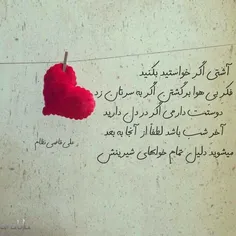 آشتی اگر خواستید بکنید
فکر بی هوا برگشتن اگر به سرتان زد
دوستت دارمی اگر در دل دارید
آخر شب باشد لطفاً از آنجا به بعد
میشوید دلیل تمام خوابهای شیرینش
علی قاضی نظام